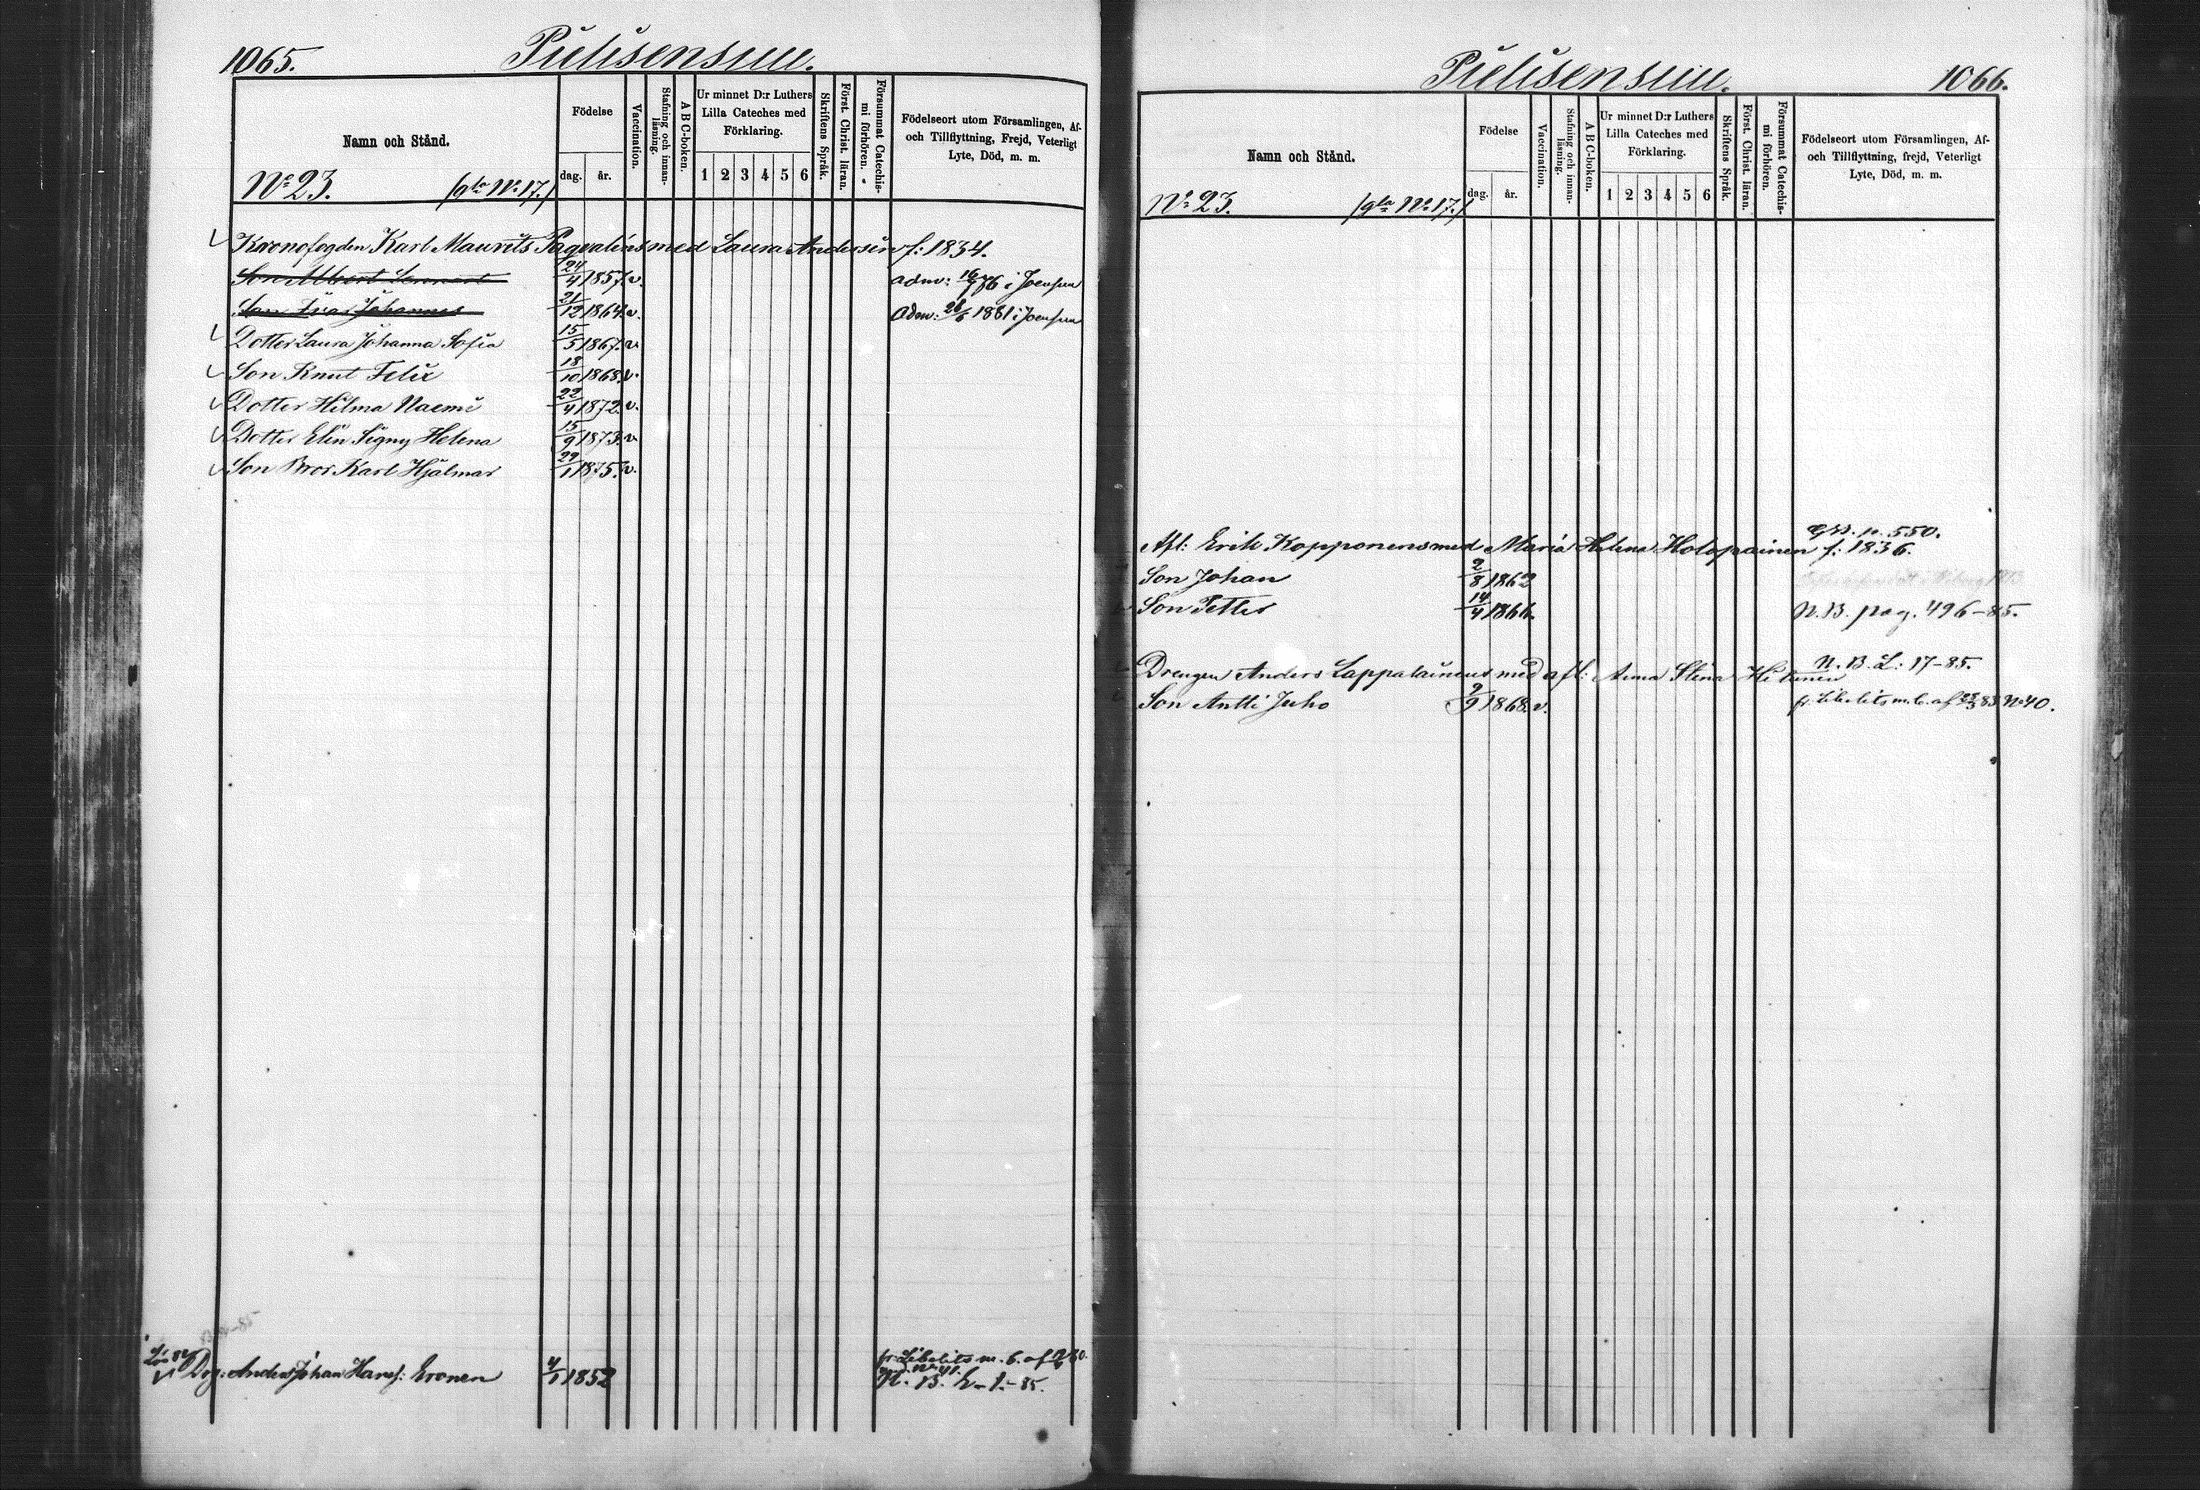 1065.
Pielisensuu.
Namn och Stånd.
Födelse
dag.
år.
Vaccination.
Stafning och innan-läsning.
A B C-boken.
Ur minnet D:r Luthers
Lilla Cateches med
Förklaring.
1 2 3 4 5 6
Skriftens Språk.
Först. Christ. läran.
Försummat Catechis-mi förhören.
Födelseort utom Församlingen, Af-
och Tillflyttning, Frejd, Veterligt
Lyte, Död, m. m.
No 23. (gla No 17.)
Kronofogden Karl Maurits Pagvalins med Laura Andersin f: 1834.
Son Albert Lennart 24/4 1857. v. adm: 16/7 76 i Joensuu
Son Johannes 21/12 1864. v. adm: 26/6 1881 i Joensuu
Dotter Laura Johanna Sofia 15/5 1867. v.
Son Knut Felix 18/10 1868. v.
Dotter Hilma Naemi 22/4 1872. v.
Dotter Elin Signy Helena 15/9 1873. v.
Son Bror Karl Hjalmar 29/1 1875. v.
Drg: Anders Johan Hansf: Eronen 4/1 1852
fr. Libelits m. b. af
N. B. L. 1.-85.
Pielisensuu.
1066.
Namn och Stånd.
Födelse
dag.
år.
Vaccination.
Stafning och innan-läsning.
A B C-boken.
Ur minnet D:r Luthers
Lilla Cateches med
Förklaring.
1 2 3 4 5 6
Skriftens Språk.
Först. Christ. läran.
Försummat Catechis-mi förhören.
Födelseort utom Församlingen, Af-
och Tillflyttning, frejd, Veterligt
Lyte, Död, m. m.
No 23. (gla No 17.)
p. 550.
Afl: Erik Kopponens med Maria Helena Holopainen f: 1836.
Son Johan 2/8 1862
Son Petter 14/4 1866. N. B. pag. 496-85.
N. B. L: 17-85.
Drengen Anders Lappalainens med afl: Anna Stina Hiltunen
Son Antti Juho 9/9 1868. v. fr. Libelits m. b. af 83 No 40.